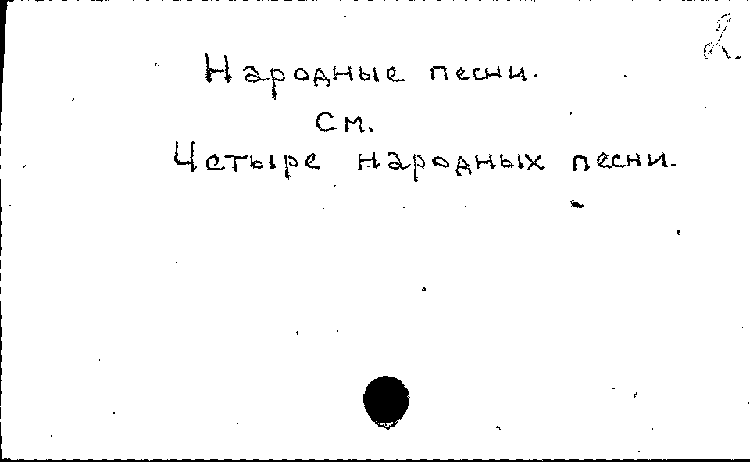 2.
Народные песни.
См.
Четыре народных песни.